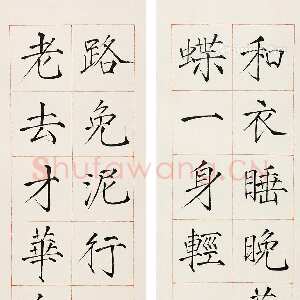 和衣睡晚
蝶一身輕
路免泥行
老去才華
Shufawang.CN